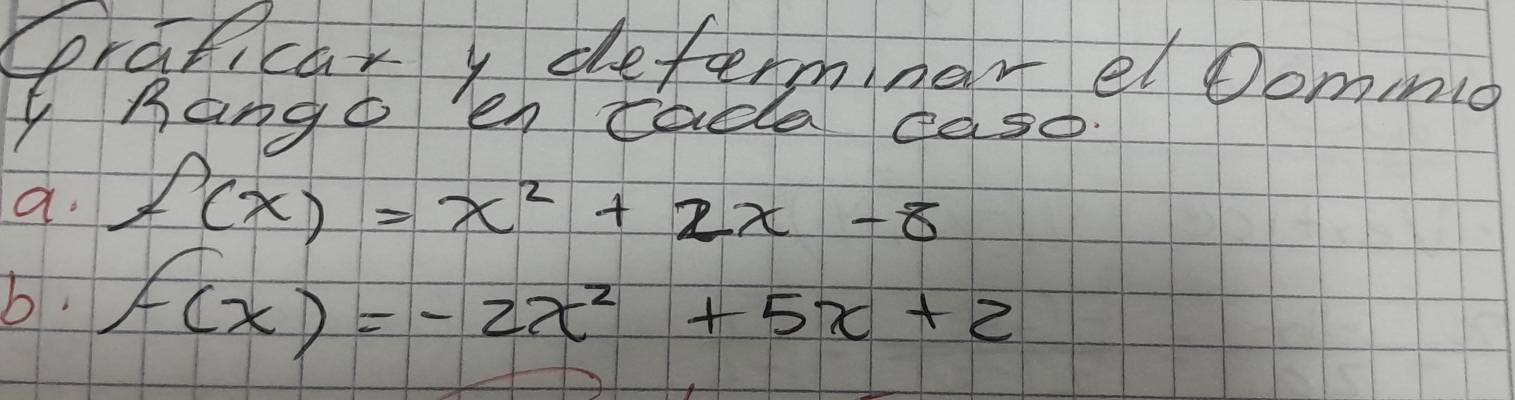 Gráficar y determinar el Dominio
y Rango en cada caso.
a. f(x) = x² + 2x - 8
b. f(x) = - 2x² + 5x + 2